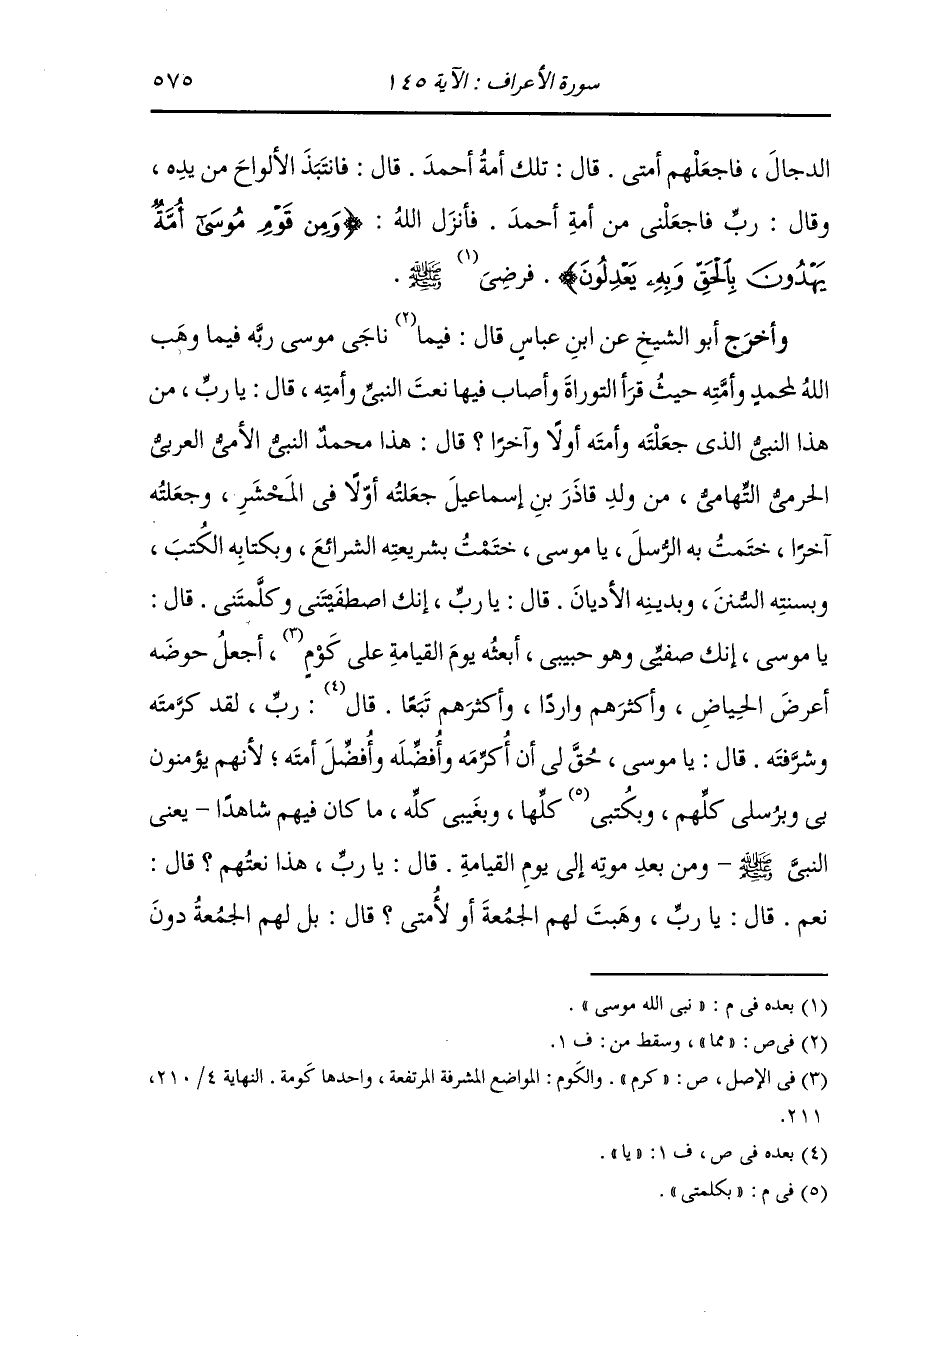 سورة الأعراف : الآية ١٤٥ ٥٧٥
الدجالَ ، فاجعَلْهم أمتى . قال : تلك أمةُ أحمدَ . قال : فانتَبَذَ الألواحَ من يدِه ،
وقال : ربِّ فاجعَلْنى من أمةِ أحمدَ . فأنزَل اللهُ : ﴿وَمِن قَوْمِ مُوسَىٰٓ أُمَّةٌ
يَهْدُونَ بِٱلْحَقِّ وَبِهِۦ يَعْدِلُونَ﴾ . فرضِىَ(١) ﷺ .
وأخرَج أبو الشيخِ عن ابنِ عباسٍ قال : فيما(٢) ناجَى موسى ربَّه فيما وهَب
اللهُ لمحمدٍ وأمَّتِه حيثُ قرَأ التوراةَ وأصاب فيها نعتَ النبىِّ وأمتِه ، قال : يا ربِّ ، من
هذا النبىُّ الذى جعلْتَه وأمتَه أولًا وآخرًا ؟ قال : هذا محمدٌ النبىُّ الأمىُّ العربىُّ
الحرمىُّ التِّهامىُّ ، من ولدِ قاذَرَ بنِ إسماعيلَ جعَلتُه أوّلًا فى المَحْشَرِ ، وجعَلتُه
آخرًا ، ختَمتُ به الرُّسلَ ، يا موسى ، ختَمْتُ بشريعتِه الشرائعَ ، وبكتابِه الكُتبَ ،
وبسنتِه السُّننَ ، وبدينِه الأديانَ . قال : يا ربِّ ، إنك اصطفَيْتَنى وكلَّمتَنى . قال :
يا موسى ، إنك صفيِّى وهو حبيبى ، أبعثُه يومَ القيامةِ على كَوْمٍ(٣) ، أجعلُ حوضَه
أعرضَ الحِياضِ ، وأكثرَهم واردًا ، وأكثرَهم تَبَعًا . قال(٤) : ربِّ ، لقد كرَّمتَه
وشرَّفتَه . قال : يا موسى ، حُقَّ لى أن أُكرِّمَه وأُفضِّلَه وأُفضِّلَ أمتَه ؛ لأنهم يؤمنون
بى وبرُسلى كلِّهم ، وبكُتبى(٥) كلِّها ، وبغَيبى كلِّه ، ما كان فيهم شاهدًا – يعنى
النبىَّ ﷺ – ومن بعدِ موتِه إلى يومِ القيامةِ . قال : يا ربِّ ، هذا نعتُهم ؟ قال :
نعم . قال : يا ربِّ ، وهَبتَ لهم الجُمُعةَ أو لأُمتى ؟ قال : بل لهم الجُمعةُ دونَ
(١) بعده فى م : « نبى الله موسى » .
(٢) فى ص : « مما » ، وسقط من : ف ١.
(٣) فى الإصل ، ص : « كرم » . والكَوم : المواضع المشرفة المرتفعة ، واحدها كَومة . النهاية ٤/ ٢١٠،
٢١١.
(٤) بعده فى ص ، ف ١: « يا » .
(٥) فى م : « بكلمتى » .